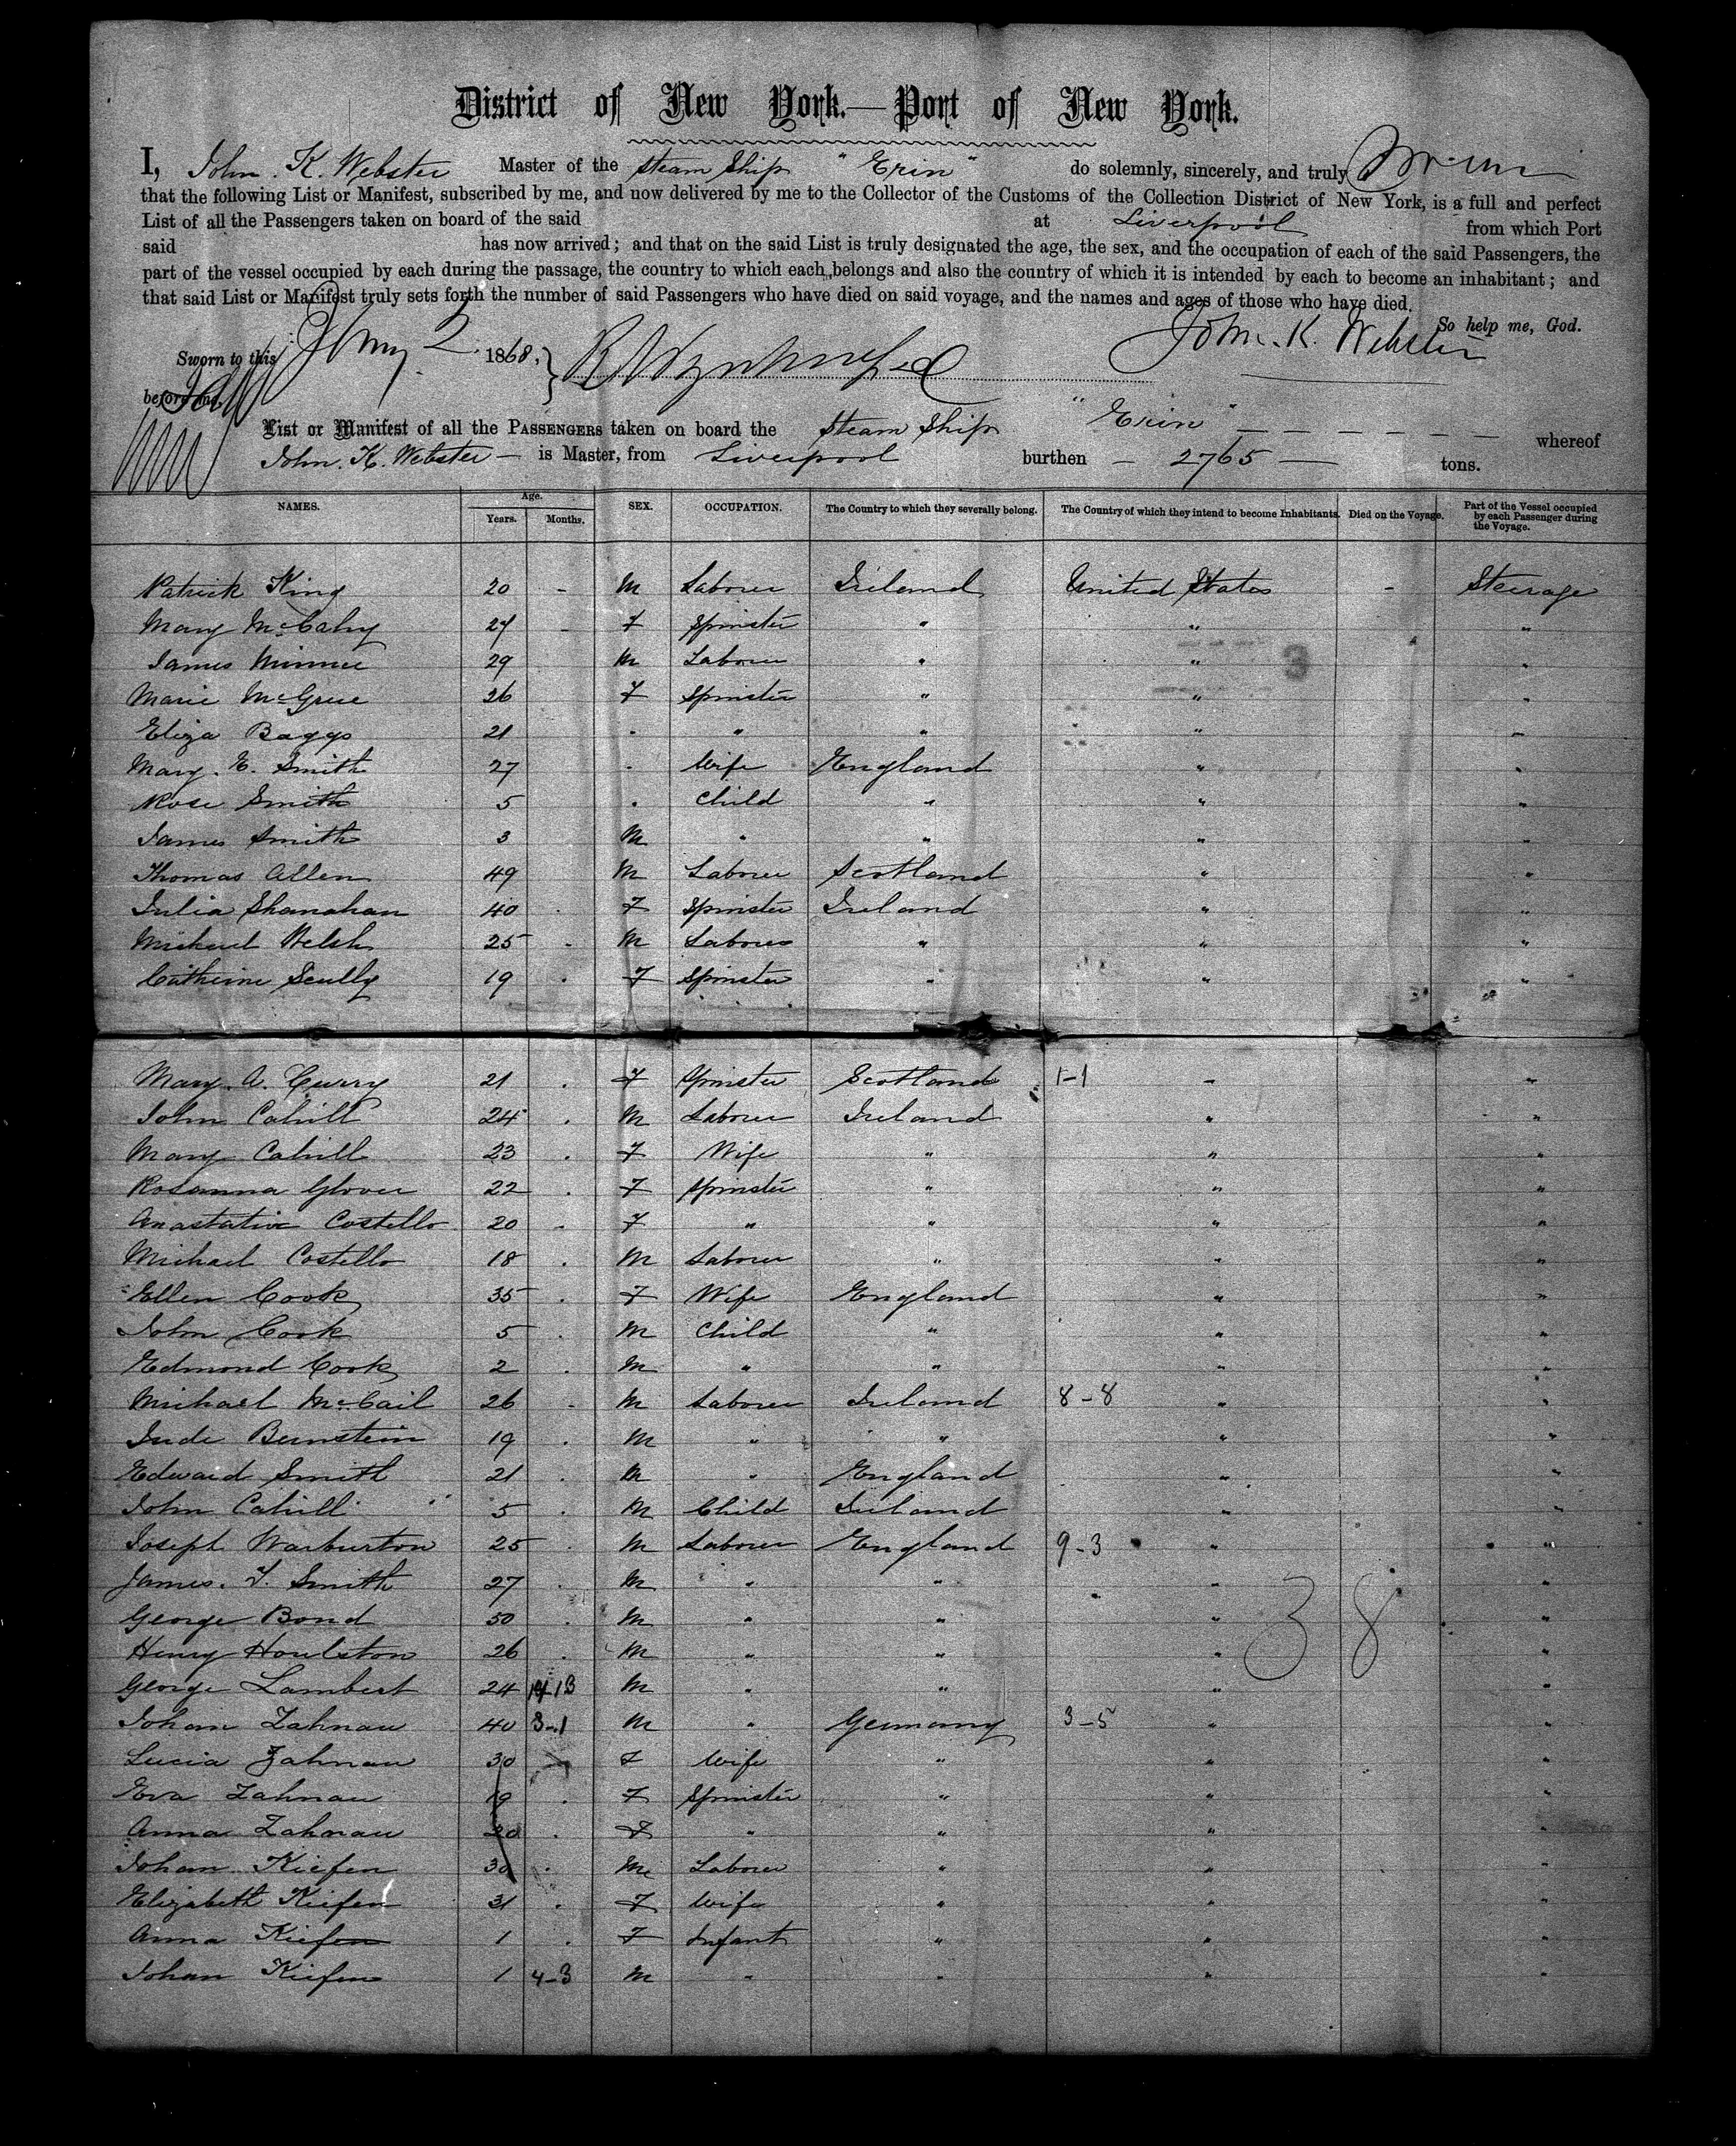 District of New York.—Port of New York.
I, John. K. Webster Master of the Steam Ship "Erin" do solemnly, sincerely, and truly
that the following List or Manifest, subscribed by me, and now delivered by me to the Collector of the Customs of the Collection District of New York, is a full and perfect
List of all the Passengers taken on board of the said at Liverpool from which Port
said has now arrived; and that on the said List is truly designated the age, the sex, and the occupation of each of the said Passengers, the
part of the vessel occupied by each during the passage, the country to which each belongs and also the country of which it is intended by each to become an inhabitant; and
that said List or Manifest truly sets forth the number of said Passengers who have died on said voyage, and the names and ages of those who have died.
So help me, God.
Sworn to this 2 1868, John. K. Webster
before me,
List or Manifest of all the PASSENGERS taken on board the Steam Ship "Erin" — — — — — — whereof
John. K. Webster — is Master, from Liverpool burthen — 2765 — tons.
NAMES. Age. Years. Months. SEX. OCCUPATION. The Country to which they severally belong. The Country of which they intend to become Inhabitants. Died on the Voyage. Part of the Vessel occupied by each Passenger during the Voyage.
Patrick King 20 - M Laborer Ireland United States - Steerage
Mary 27 - F Spinster " " "
James 29 M Laborer " " "
Marie McGrue 26 F Spinster " " "
Eliza Baggs 21 " " " " "
Mary. E. Smith 27 " Wife England " "
Rose Smith 5 " Child " " "
James Smith 3 M " " " "
Thomas Allen 49 M Laborer Scotland " "
Julia Shanahan 40 F Spinster Ireland " "
Michael Welsh 25 M Laborer " " "
Catherine Scully 19 F Spinster " " "
Mary. A. Curry 21 F Spinster Scotland 1-1 " "
John Cahill 24 M Laborer Ireland " "
Mary Cahill 23 F Wife " " "
Rosanna Glover 22 F Spinster " " "
Anastatia Costello 20 F " " " "
Michael Costello 18 M Laborer " " "
Ellen Cook 35 F Wife England " "
John Cook 5 M Child " " "
Edmond Cook 2 M " " " "
Michael McCail 26 M Laborer Ireland 8-8 " "
Jude Bernstein 19 M " " " "
Edward Smith 21 M " England " "
John Cahill 5 M Child Ireland " "
Joseph Warburton 25 M Laborer England 9-3 " "
James. T. Smith 27 M " " " "
George Bond 50 M " " " " 38
Henry Houlston 26 M " " " "
George Lambert 24 M " " " "
Johan Zahnau 40 3-1 M " Germany 3-5 " "
Lucia Zahnau 30 F Wife " " "
Eva Zahnau 19 F Spinster " " "
Anna Zahnau 20 F " " " "
Johan Kiefen 30 M Laborer " " "
Elizabeth Kiefen 31 F Wife " " "
Anna Kiefen 1 F Infant " " "
Johan Kiefen 1 4-3 M " " " "